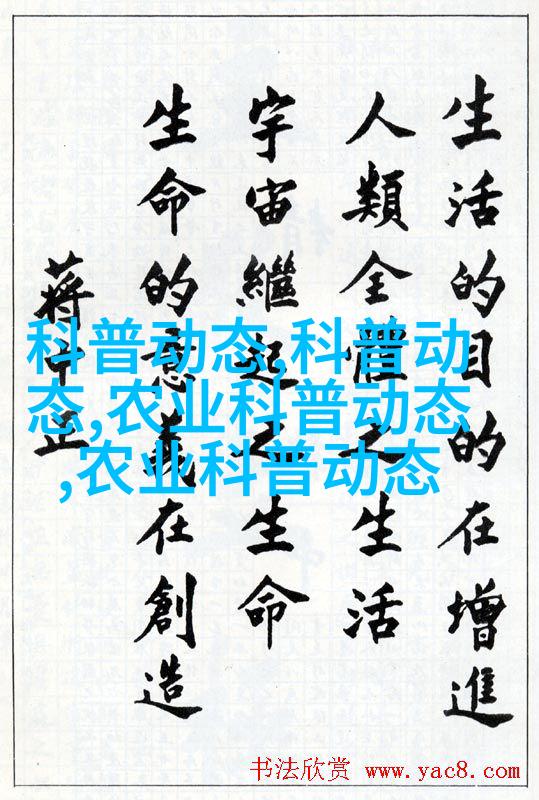 生活的目的在增進
人類全體之生活
宇宙繼起之生命
生命的意義在創造
蔣中正
科普动态,科普动
态,农业科普动态
,农业科普动态
书法欣赏 www.yac8.com